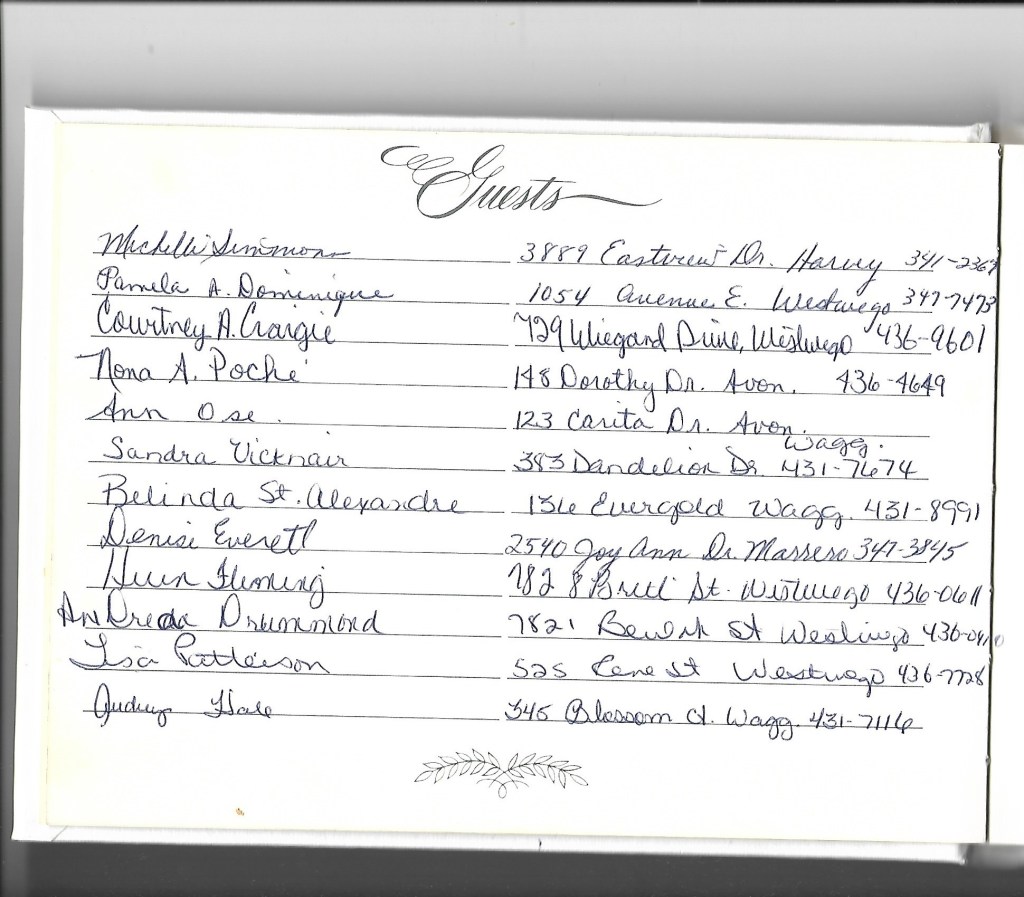 Guests
Michelle Simmons 3889 Eastview Dr. Harvey 341-2367
Pamela A. Dominique 1054 Avenue E. Westwego 347-7473
Courtney A. Craigie 729 Wiegand Drive, Westwego 436-9601
Nona A. Poché 148 Dorothy Dr. Avon. 436-4649
Ann Ose. 123 Carita Dr. Avon.
Wagg.
Sandra Vicknair 383 Dandelion Dr 431-7674
Belinda St. Alexandre 136 Evergold Wagg. 431-8991
Denise Everett 2540 Joy Ann Dr. Marrero 347-3845
Fleming St. Westwego 436-0611
AnDreda Drummond 7821 St Westwego
Lisa Patterson 525 Rene St Westwego 436-7728
Audrey 345 Blossom Ct. Wagg. 431-7116